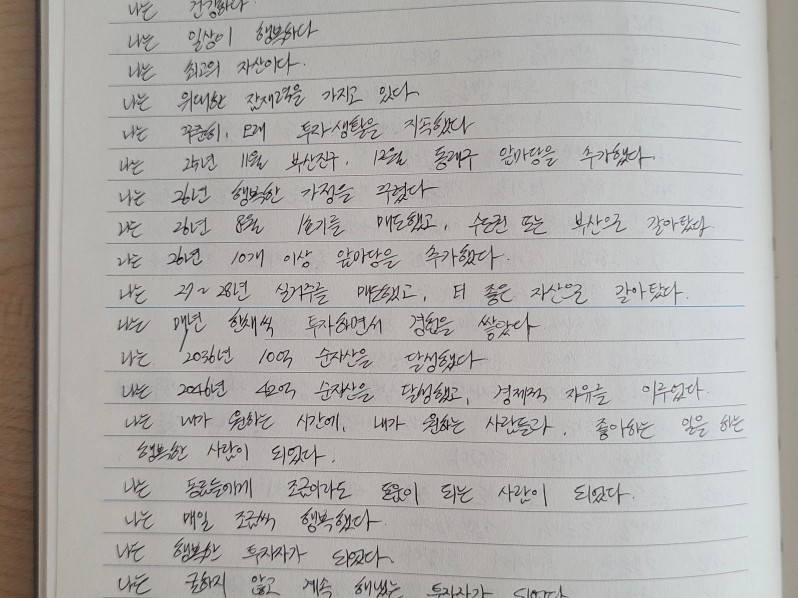 나는 건강하다.
나는 일상이 행복하다
나는 최고의 자산이다.
나는 위대한 잠재력을 가지고 있다.
나는 꾸준히, 오래 투자생활을 지속했다
나는 25년 11월 부산진구, 12월 동래구 앞마당을 추가했다.
나는 26년 행복한 가정을 꾸렸다
나는 26년 8월 1호기를 매도했고, 수도권 또는 부산으로 갈아탔다
나는 26년 10개 이상 앞마당을 추가했다.
나는 27~28년 실거주를 매도했고, 더 좋은 자산으로 갈아탔다.
나는 매년 한채씩 투자하면서 경험을 쌓았다
나는 2036년 10억 순자산을 달성했다
나는 2046년 42억 순자산을 달성했고, 경제적 자유를 이루었다.
나는 내가 원하는 시간에, 내가 원하는 사람들과, 좋아하는 일을 하는
행복한 사람이 되었다.
나는 동료들에게 조금이라도 도움이 되는 사람이 되었다.
나는 매일 조금씩 행복했다.
나는 행복한 투자자가 되었다.
나는 굴하지 않고 계속 해냈는 투자자가 되었다